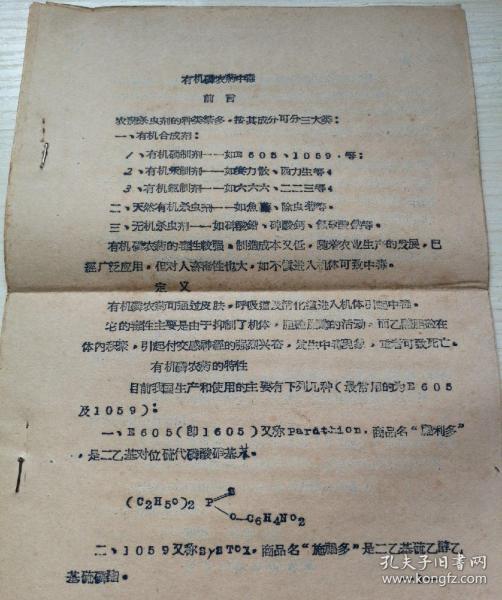 有机磷农药中毒
前言
农药杀虫剂的种类繁多，按其成分可分三大类：
一、有机合成剂：
1、有机磷制剂——如E605、1059，等；
2、有机汞制剂——如 力散、西力生等；
3、有机氯制剂——如六六六、二二三等；
二、天然有机杀虫剂——如鱼 、除虫菊等。
三、无机杀虫剂——如砷酸铅、砷酸钙、 等。
有机磷农药的毒性较强。制造成本又低，随着农业生产的发展，已
经广泛应用，但对人畜毒性也大，如不慎进入机体可致中毒。
定义
有机磷农药可通过皮肤，呼吸道及消化道进入机体引起中毒。
它的毒性主要是由于抑制了机体， 的活动，而乙酰胆 在
体内积聚，引起付交感神经的强烈兴奋，发生中毒现象，重者可致死亡。
有机磷农药的特性
目前我国生产和使用的主要有下列几种（最常用的为E605
及1059）：
一、E605（即1605）又称Parathion，商品名“ 利多”
，是二乙基对位硫代磷酸硝基苯。
(C2H5O)2 P
S
O C6H4NO2
二、1059又称SysTox，商品名“ 多”是二乙基硫乙醇乙
基硫磷 。
孔夫子旧书网
www.kongfz.com